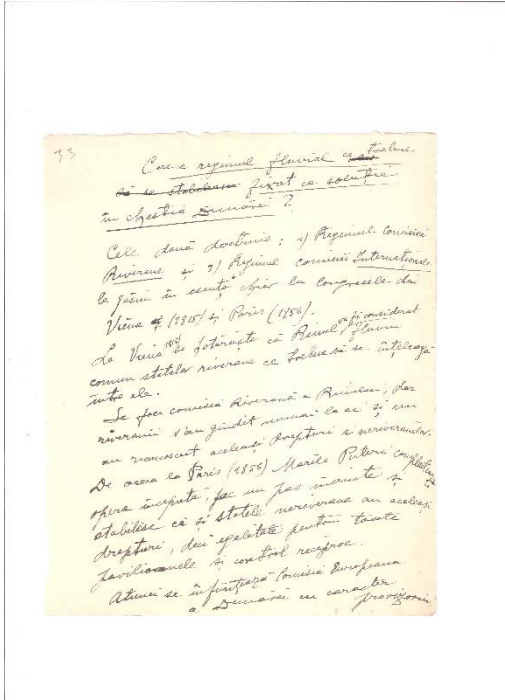 33
Care-e regimul fluvial ce trebue
să se stabilească fixat ca soluție
în chestia Dunărei ?
Cele două doctrine : 1) Regimul Comisiei
Riverane și 2) Regimul comisiei Internaționale
le găsim în esență chiar la congresele din
Viena (1815) și Paris (1856).
La Viena se hotărăște că Rinul va fi considerat fluviu
comun statelor riverane ce trebue să se înțeleagă
între ele.
Se face comisia Riverană a Rinului, dar
riveranii s'au gândit numai la ei și nu
au recunoscut aceleași drepturi și neriveranilor.
De aceea la Paris (1856) Marile Puteri completează
opera începută, fac un pas înainte și
stabilesc că și statele neriverane au aceleași
drepturi, deci egalitate pentru toate
pavilioanele și control reciproc.
Atunci se înființează Comisia Europeana
a Dunărei cu caracter provizoriu